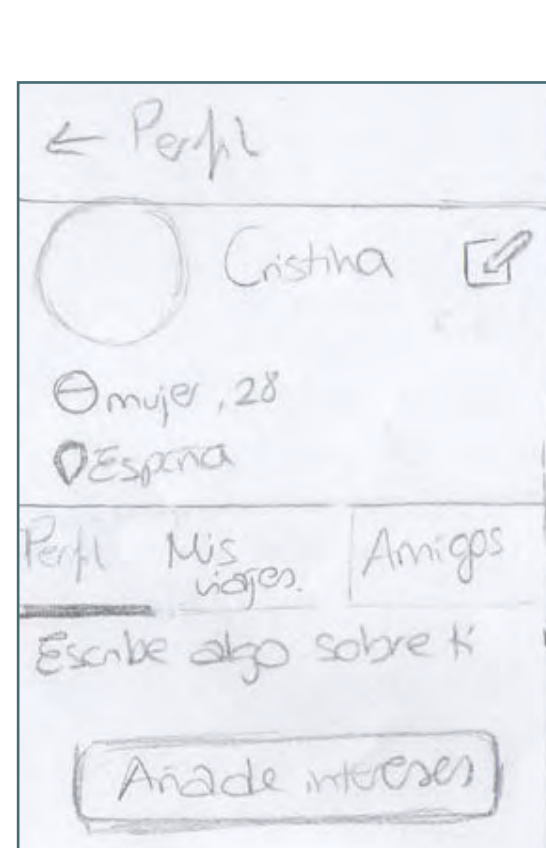 ← Perfil
Cristina
mujer, 28
España
Perfil Mis viajes. Amigos
Escribe algo sobre ti
Añade intereses